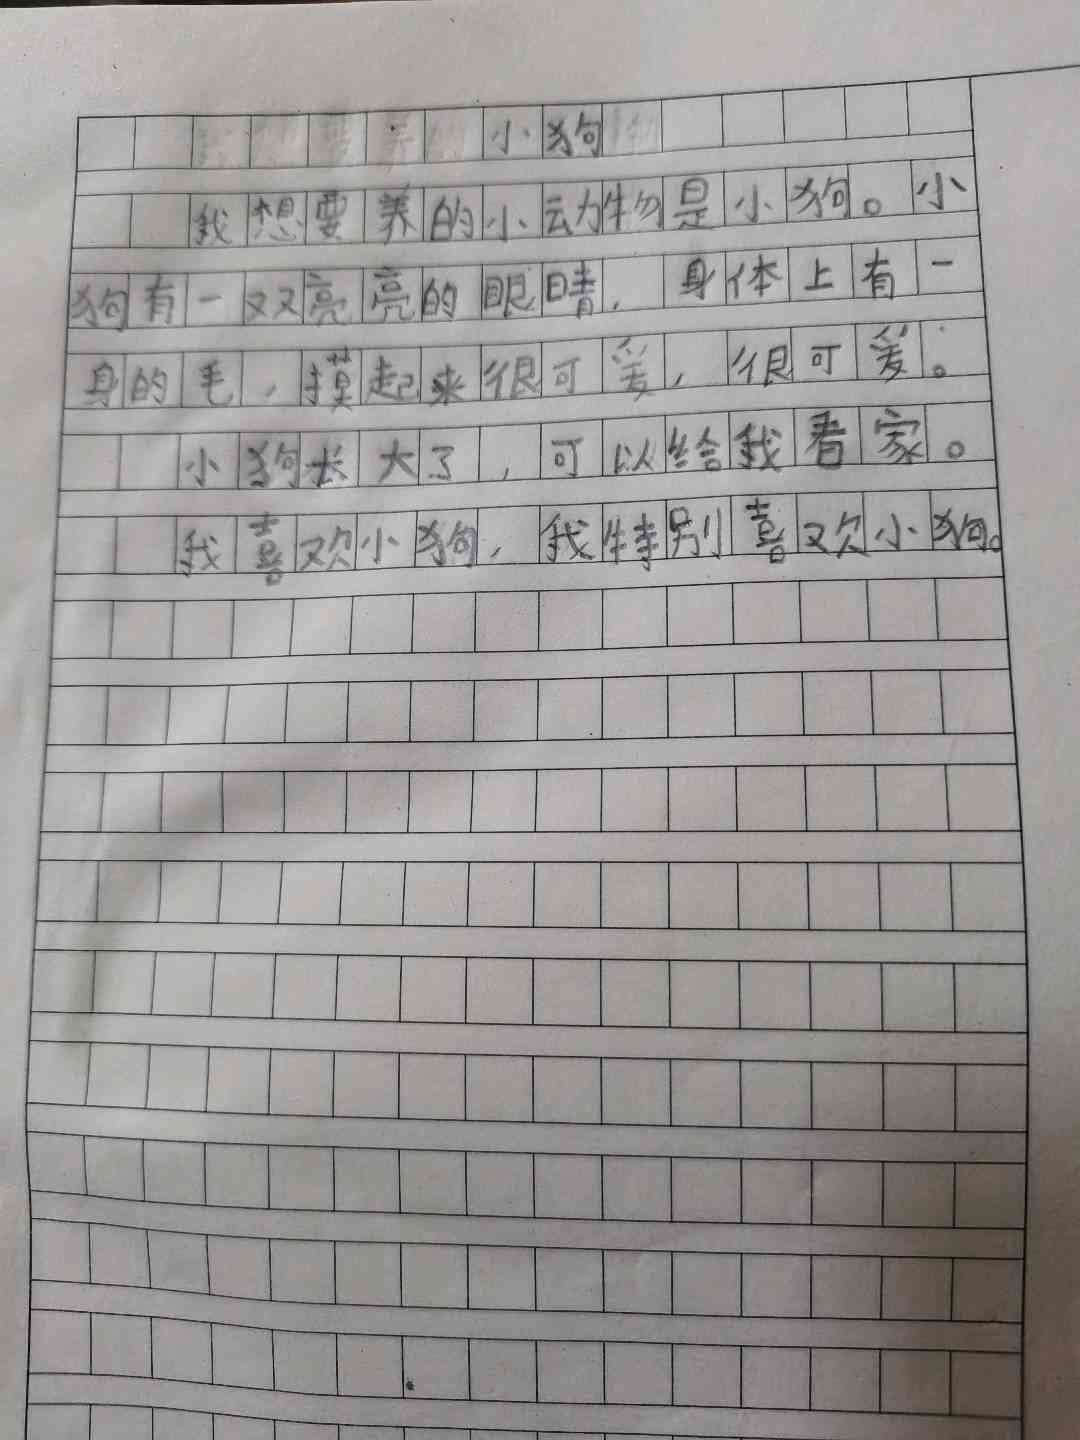 小狗
我想要养的小动物是小狗。小
狗有一双亮亮的眼睛,身体上有一
身的毛,摸起来很可爱,很可爱。
小狗长大了,可以给我看家。
我喜欢小狗,我特别喜欢小狗。